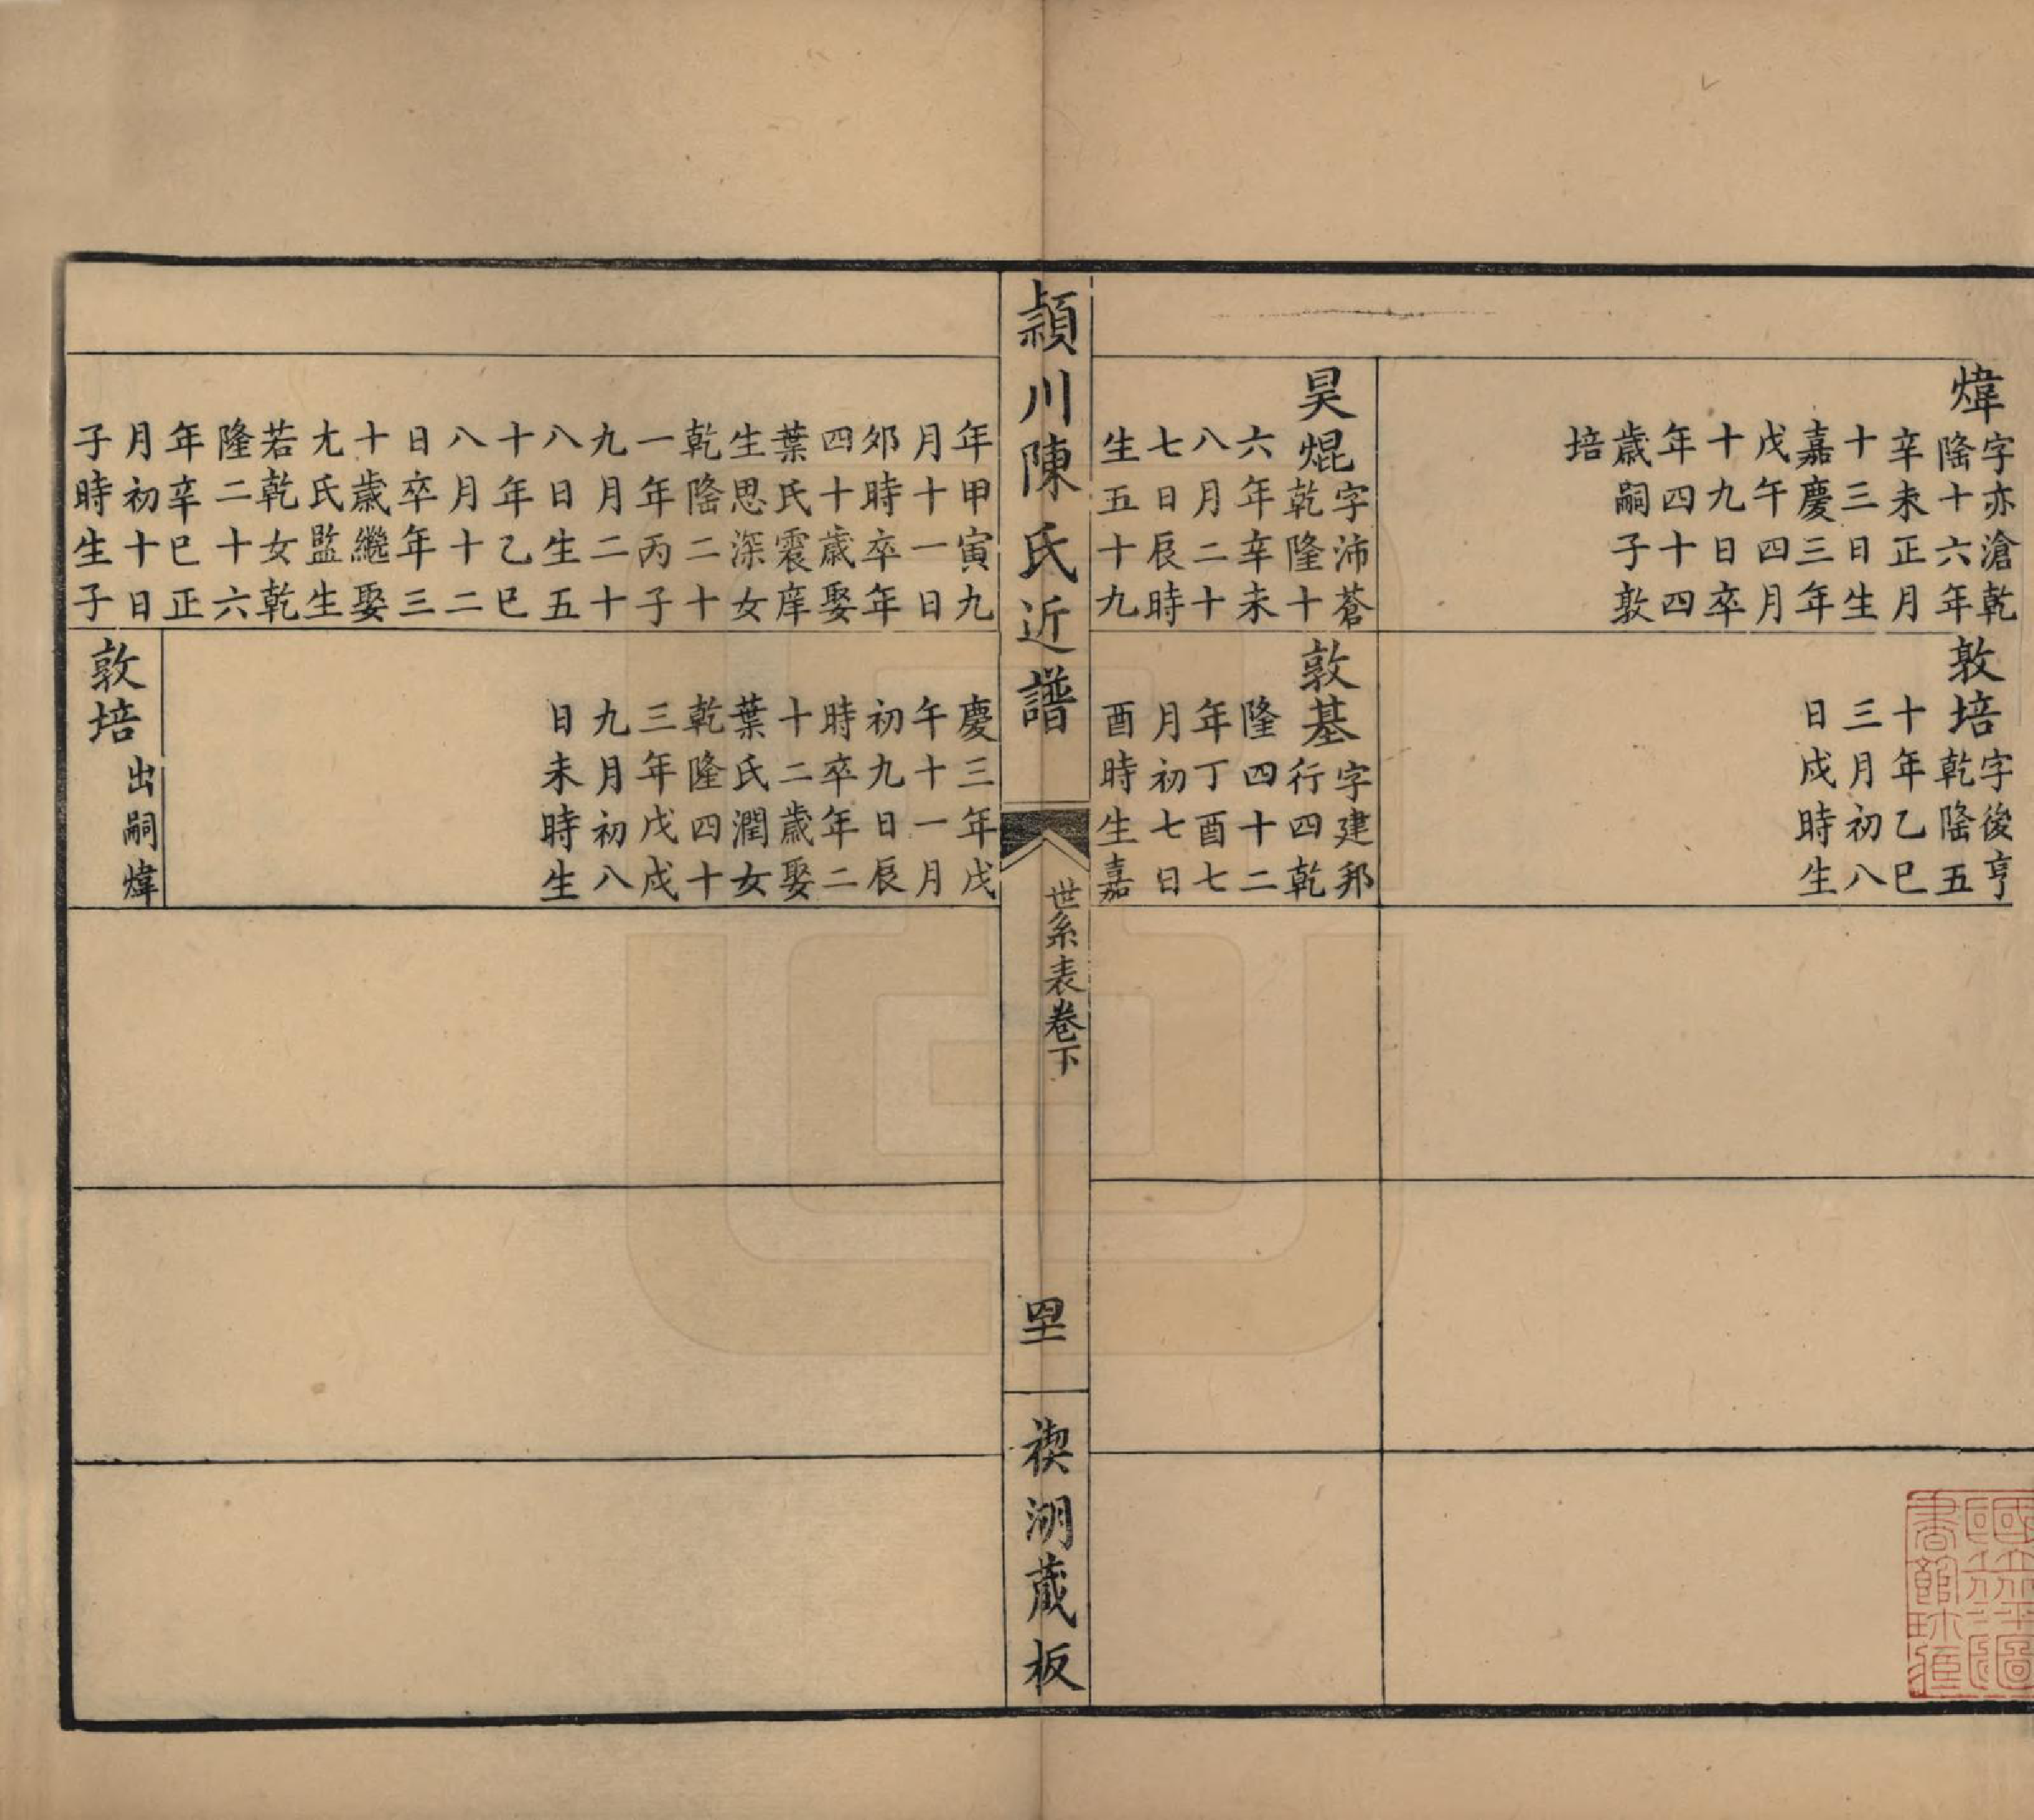 煒
字亦滄乾
隆十六年
辛未正月
十三日生
嘉慶三年
戊午四月
十九日卒
年四十四
歲嗣子敦
培
敦培
字後亨
乾隆五
十年乙巳
三月初八
日戌時生
昊焜
字沛蒼
乾隆十
六年辛未
八月二十
七日辰時
生五十九
敦基
字建邦
行四乾
隆四十二
年丁酉七
月初七日
酉時生嘉
潁川陳氏近譜
世系表卷下
禊湖藏板
年甲寅九
月十一日
卯時卒年
四十歲娶
葉氏震庠
生思深女
乾隆二十
一年丙子
九月二十
八日生五
十年乙巳
八月十二
日卒年三
十歲繼娶
尤氏監生
若乾女乾
隆二十六
年辛巳正
月初十日
子時生子
慶三年戊
午十一月
初九日辰
時卒年二
十二歲娶
葉氏潤女
乾隆四十
三年戊戌
九月初八
日未時生
敦培
出嗣煒